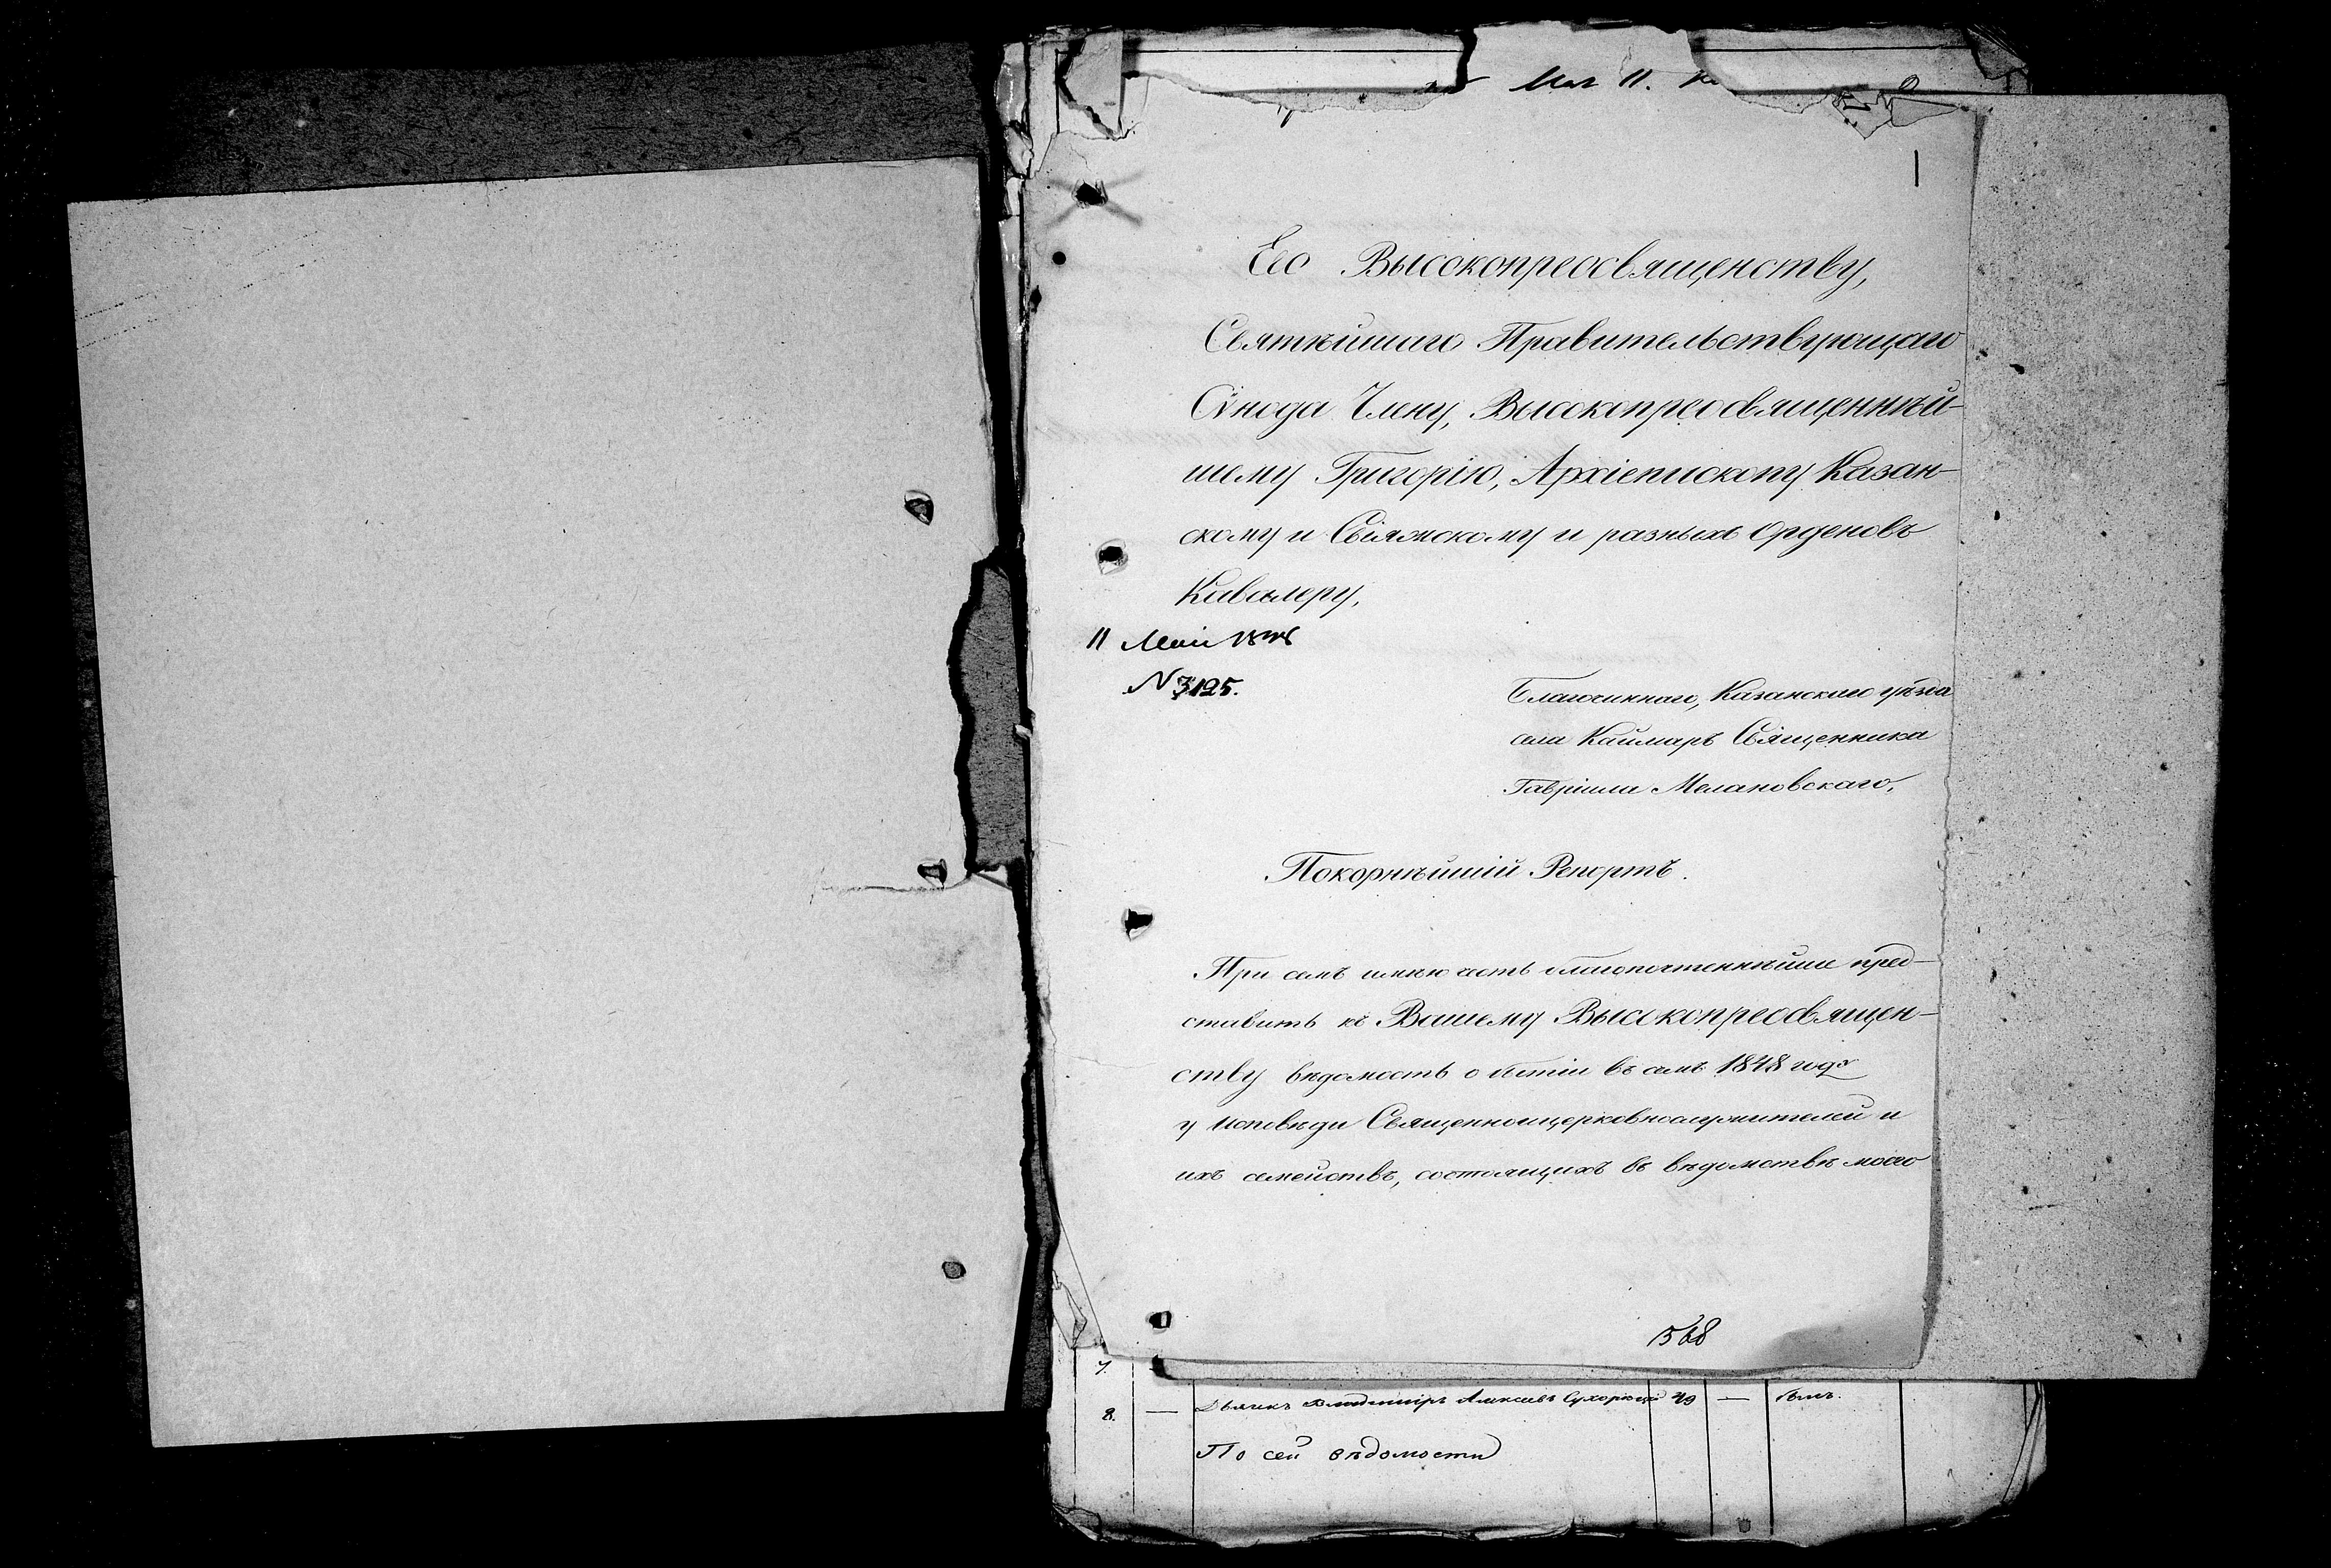 Мая 11.
1
Его Высокопреосвященству,
Святѣйшаго Правительствующаго
Сѵнода Члену, Высокопреосвященнѣй-
шему Григорію, Архіепископу Казан-
скому и Свіяжскому и разныхъ Орденовъ
Кавалеру,
11 Маія 1848
N 3125.
Благочиннаго, Казанскаго уѣзда
села Каймаръ Священника
Гавріила Мелановскаго,
Покорнѣйшій Репортъ.
При семъ имѣю честь благопочтеннѣйше пред-
ставить къ Вашему Высокопреосвящен-
ству вѣдомость о бытіи въ семъ 1848 годѣ
у исповѣди Священноцерковнослужителей и
ихъ семействъ, состоящихъ въ вѣдомствѣ моего
568
7.
8. — Дьячекъ Владиміръ Алексѣевъ 49 — былъ.
По сей вѣдомости